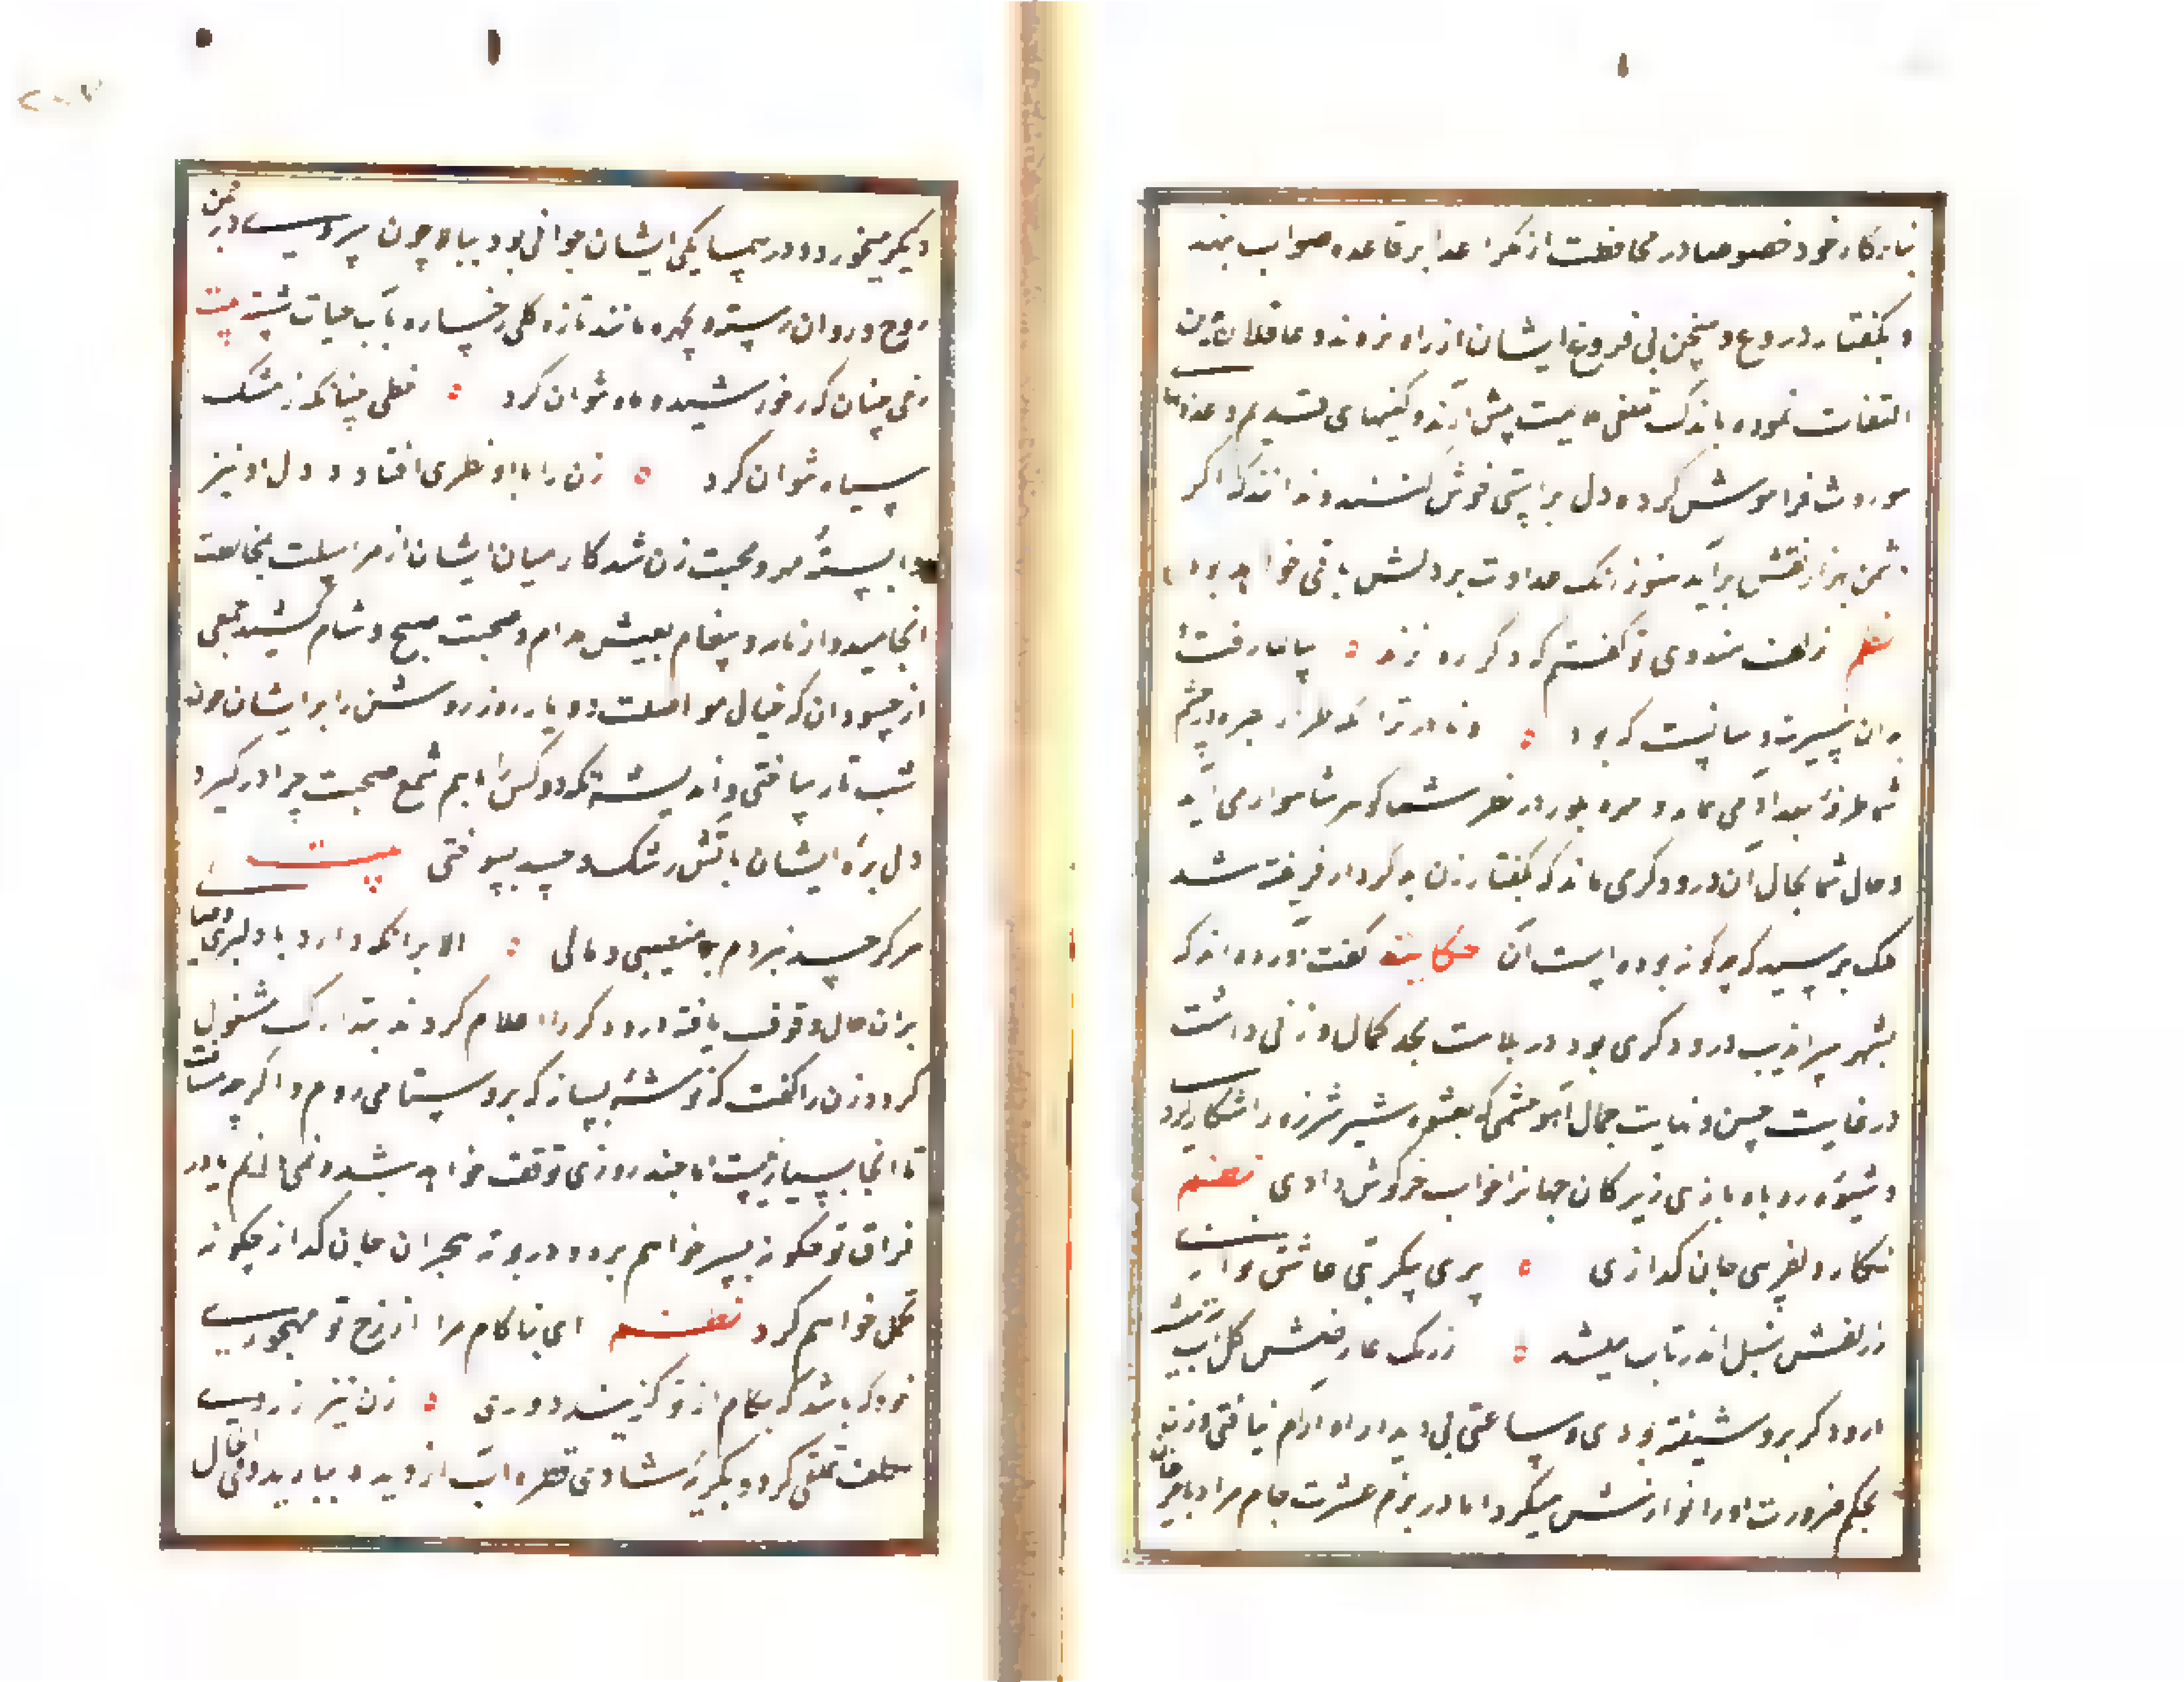 بنابر کار خود خصوصا در محافظت از مکر اعدا بر قاعده صواب نهند
و بگفتار دروغ و سخن بی فروغ ایشان از راه نروند و عاقلان
التفات نموده باندک تملقی پیش آیند و کینهای قدیم و عداوتها
موروث فراموش کرده دل بر اشتی خوش کنند و ندانند که اگر
دشمن هزار نقش برآید هنوز زنک عداوت بر دلش باقی خواهد بود
نظم زلف هندوی تو گفتم که دگر ره نزند سالها رفت
بدان سیرت و سانیست که بود
و حال شما بحال آن درودگری ماند که بگفتار زن بد کردار فریفته شد
ملک پرسید که چگونه بوده است آن حکایت گفت آورده اند که
بشهر سراندیب درودگری بود در بلاهت بحد کمال و زنی داشت
در غایت حسن و نهایت جمال آهو چشمی که بعشوه شیر شرزه را شکار کردی
و شیوه روباه بازی زیرکان جهانرا خواب خرگوش دادی نظم
نگار دلفریبی جان گدازی پری پیکر بتی عاشق نوازی
ز زلفش سنبل اندر تاب میشد ز رنک عارضش گل آب میشد
درودگر برو شیفته بودی و ساعتی بی دیدار او آرام نیافتی و زن
بحکم ضرورت او را نوازش میکرد اما در بزم عشرت جام مراد با حریفان
دیگر میخورد و در همسایگی ایشان جوانی بود ببالا چون سروی در چمن
روح و روان رسته و چهره مانند تازه گلی رخساره بآب حیات شسته بیت
رخی چنان که ز خورشید و ماه نتوان کرد خطی چنانکه ز مشک
سیاه نتوان کرد زن را با او نظری افتاد و دل او نیز
وابسته مهر و محبت زن شد کار میان ایشان از مراسلت بمخالطت
انجامید و از نامه و پیغام بعیش مدام و صحبت صبح و شام کشید جمعی
از حسودان که خیال مواصلت دو یار روز روشن را برایشان چون
شب تار ساختی و اندیشه آنکه دو کس را بهم شمع صحبت چرا درگیرد
دل بر ایشان بآتش رشک و حسد بسوختی بیت
هرگز حسد نبردم بر منصبی و مالی الا بر آنکه دارد با دلبری وصالی
بران حال وقوف یافته درودگر را اعلام کردند بتدارک مشغول
کرد و زن را گفت که توشه بساز که بروستا می روم و اگر چه مسافت
تا انجا بسیار نیست اما چند روزی توقف خواهد شد و نمی دانم که در
فراق تو چگونه بسر خواهم برد و در بوته هجران جان گداز چگونه
تحمل خواهم کرد نظم ای بناکام مرا از رخ تو مهجوری
خود که باشد که بکام از تو گزیند دوری زن نیز از روی
تکلف تملقی کرد و بگریه شادی قطره آب از دیده ببارید و فی الحال